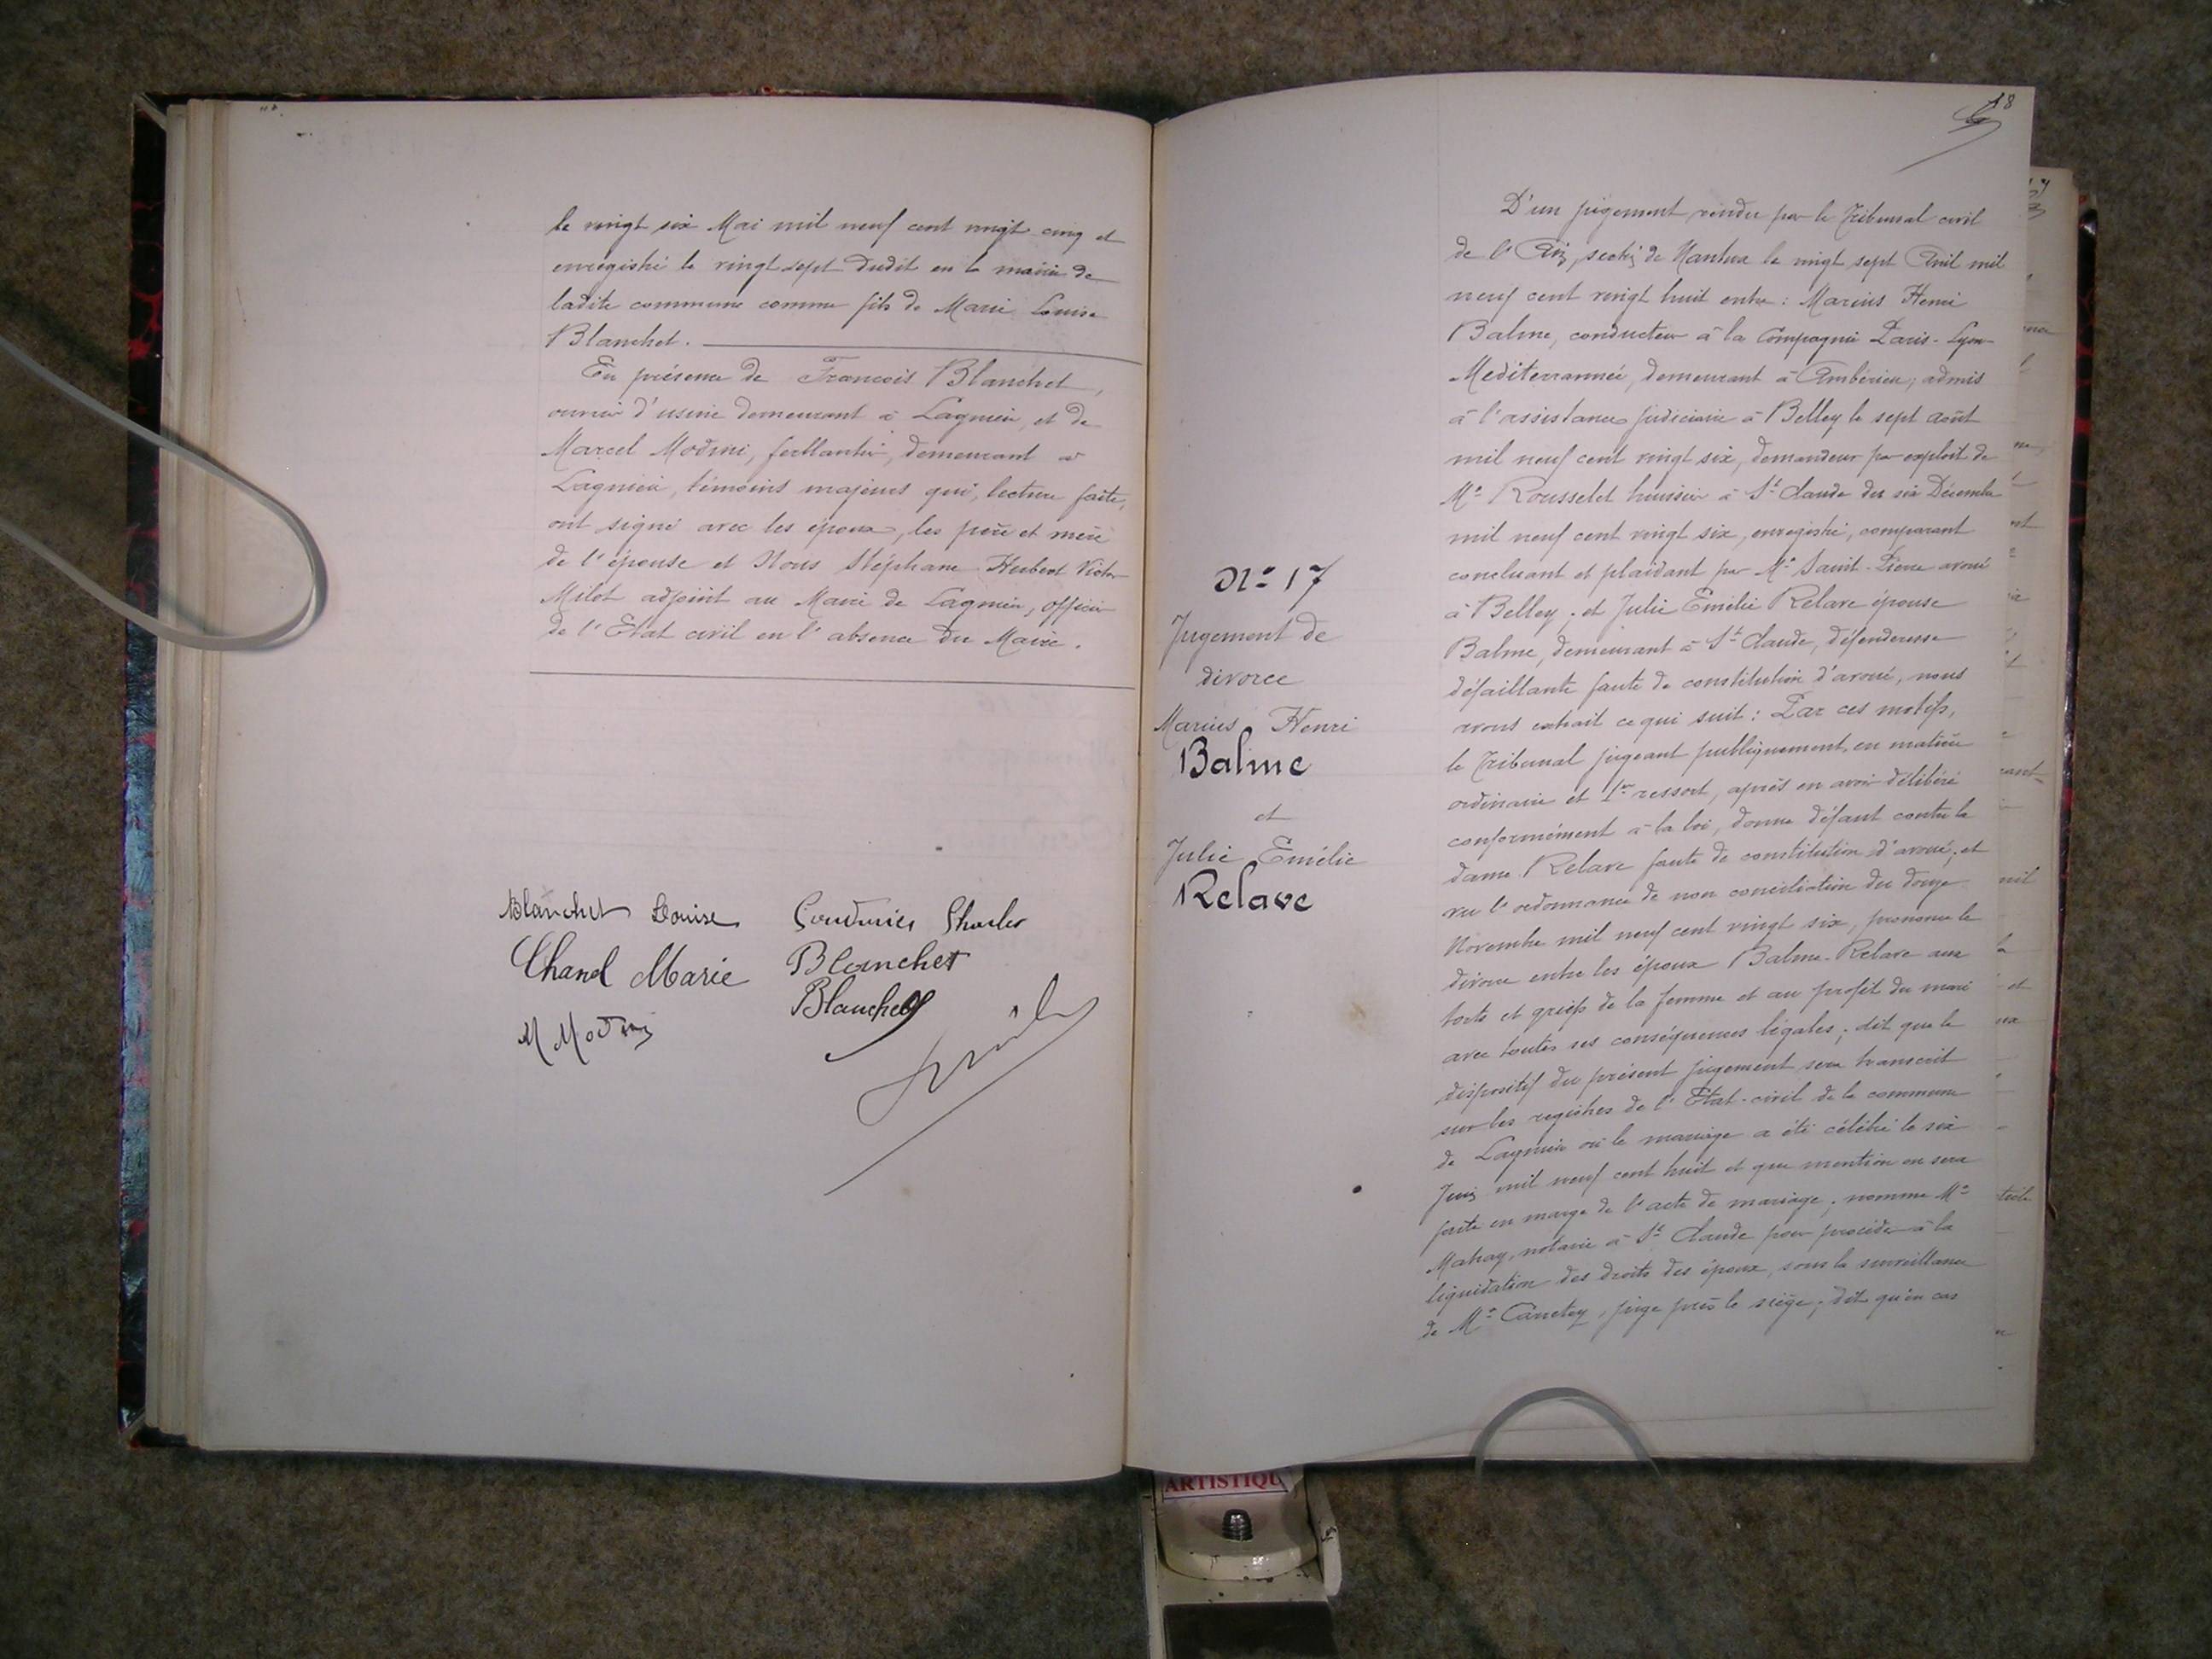 le vingt six Mai mil neuf cent vingt cinq et
enregistré le vingt sept dudit en la mairie de
ladite commune comme fils de Marie Louise
Blanchet.
En présence de François Blanchet,
ouvrier d'usine demeurant à Lagnieu, et de
Marcel Modrni, ferblantier, demeurant à
Lagnieu, témoins majeurs qui, lecture faite,
ont signé avec les époux, les père et mère
de l'épouse et Nous Stéphane Hubert Victor
Milot adjoint au Maire de Lagnieu, officier
de l'Etat civil en l'absence du Maire.
Blanchet Louise Couturier Charles
Chanel Marie Blanchet
Blanchet
18
N° 17
Jugement de
divorce
Marius Henri
Balme
et
Julie Emélie
Relave
D'un jugement rendu par le Tribunal civil
de l'Ain, section de Nantua le vingt sept Avril mil
neuf cent vingt huit entre : Marius Henri
Balme, conducteur à la Compagnie Paris-Lyon
Mediterrannée, demeurant à Ambérieu, admis
à l'assistance judiciaire à Belley le sept août
mil neuf cent vingt six, demandeur par exploit de
Me Rousselet huissier à St Claude du six Décembre
mil neuf cent vingt six, enregistré, comparant
concluant et plaidant par Me Saint-Pierre avoué
à Belley ; et Julie Emélie Relave épouse
Balme, demeurant à St Claude, défenderesse
défaillante faute de constitution d'avoué, nous
avons extrait ce qui suit : Par ces motifs,
le Tribunal jugeant publiquement en matière
ordinaire et 1er ressort, après en avoir délibéré
conformément à la loi, donne défaut contre la
dame Relave faute de constitution d'avoué ; et
vu l'ordonnance de non conciliation du douze
Novembre mil neuf cent vingt six, prononce le
divorce entre les époux Balme-Relave aux
torts et griefs de la femme et au profit du mari
avec toutes ses conséquences légales ; dit que le
dispositif du présent jugement sera transcrit
sur les registres de l'Etat-civil de la commune
de Lagnieu où le mariage a été célébré le six
Juin mil neuf cent huit et que mention en sera
faite en marge de l'acte de mariage ; nomme Me
notaire à St Claude pour procéder à la
liquidation des droits des époux, sous la surveillance
de Mr juge près le siège ; dit qu'en cas
ARTISTIQU